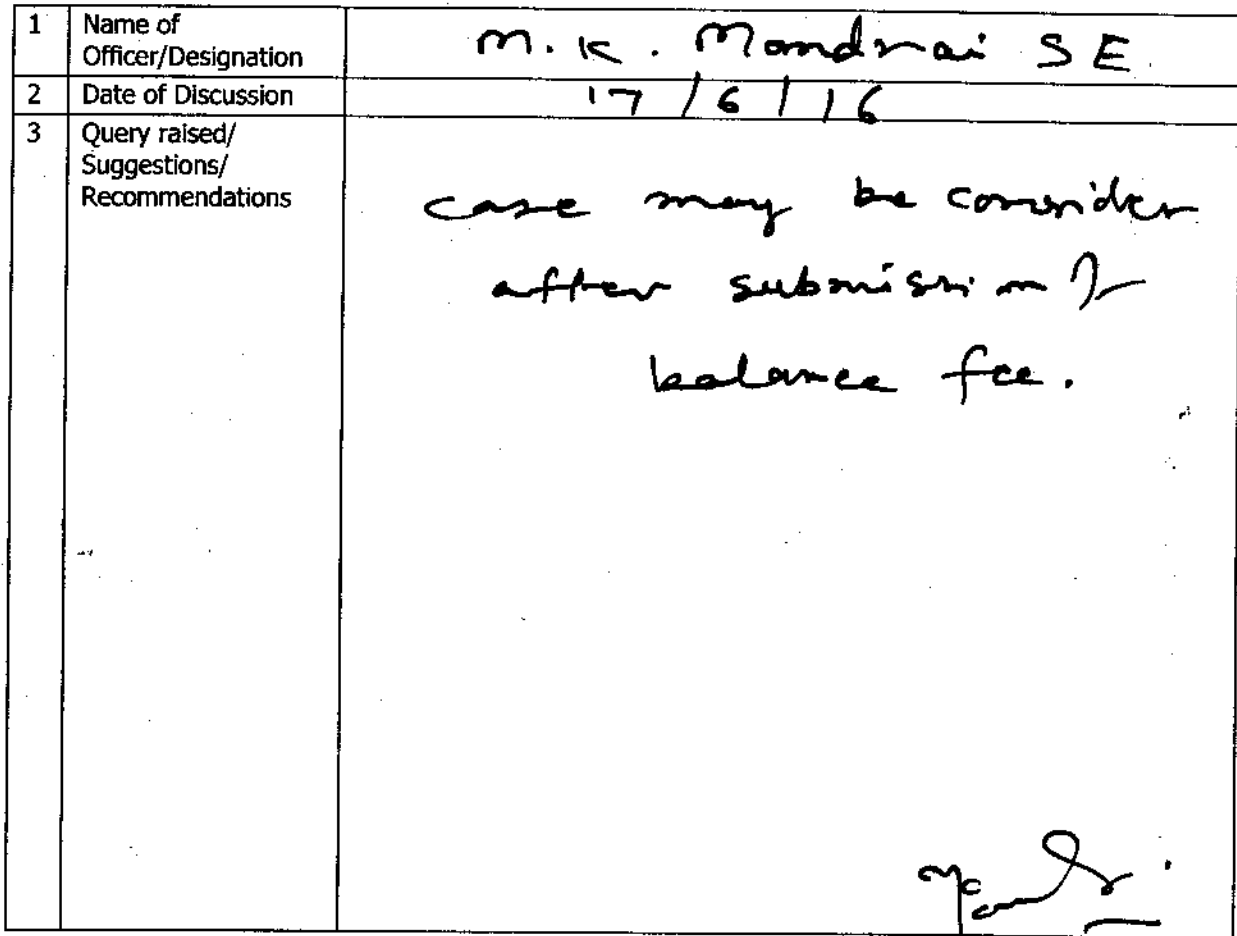 1 Name of Officer/Designation M. K. Mandrai SE
2 Date of Discussion 17/6/16
3 Query raised/
Suggestions/
Recommendations
case may be consider
after submission of
balance fee.